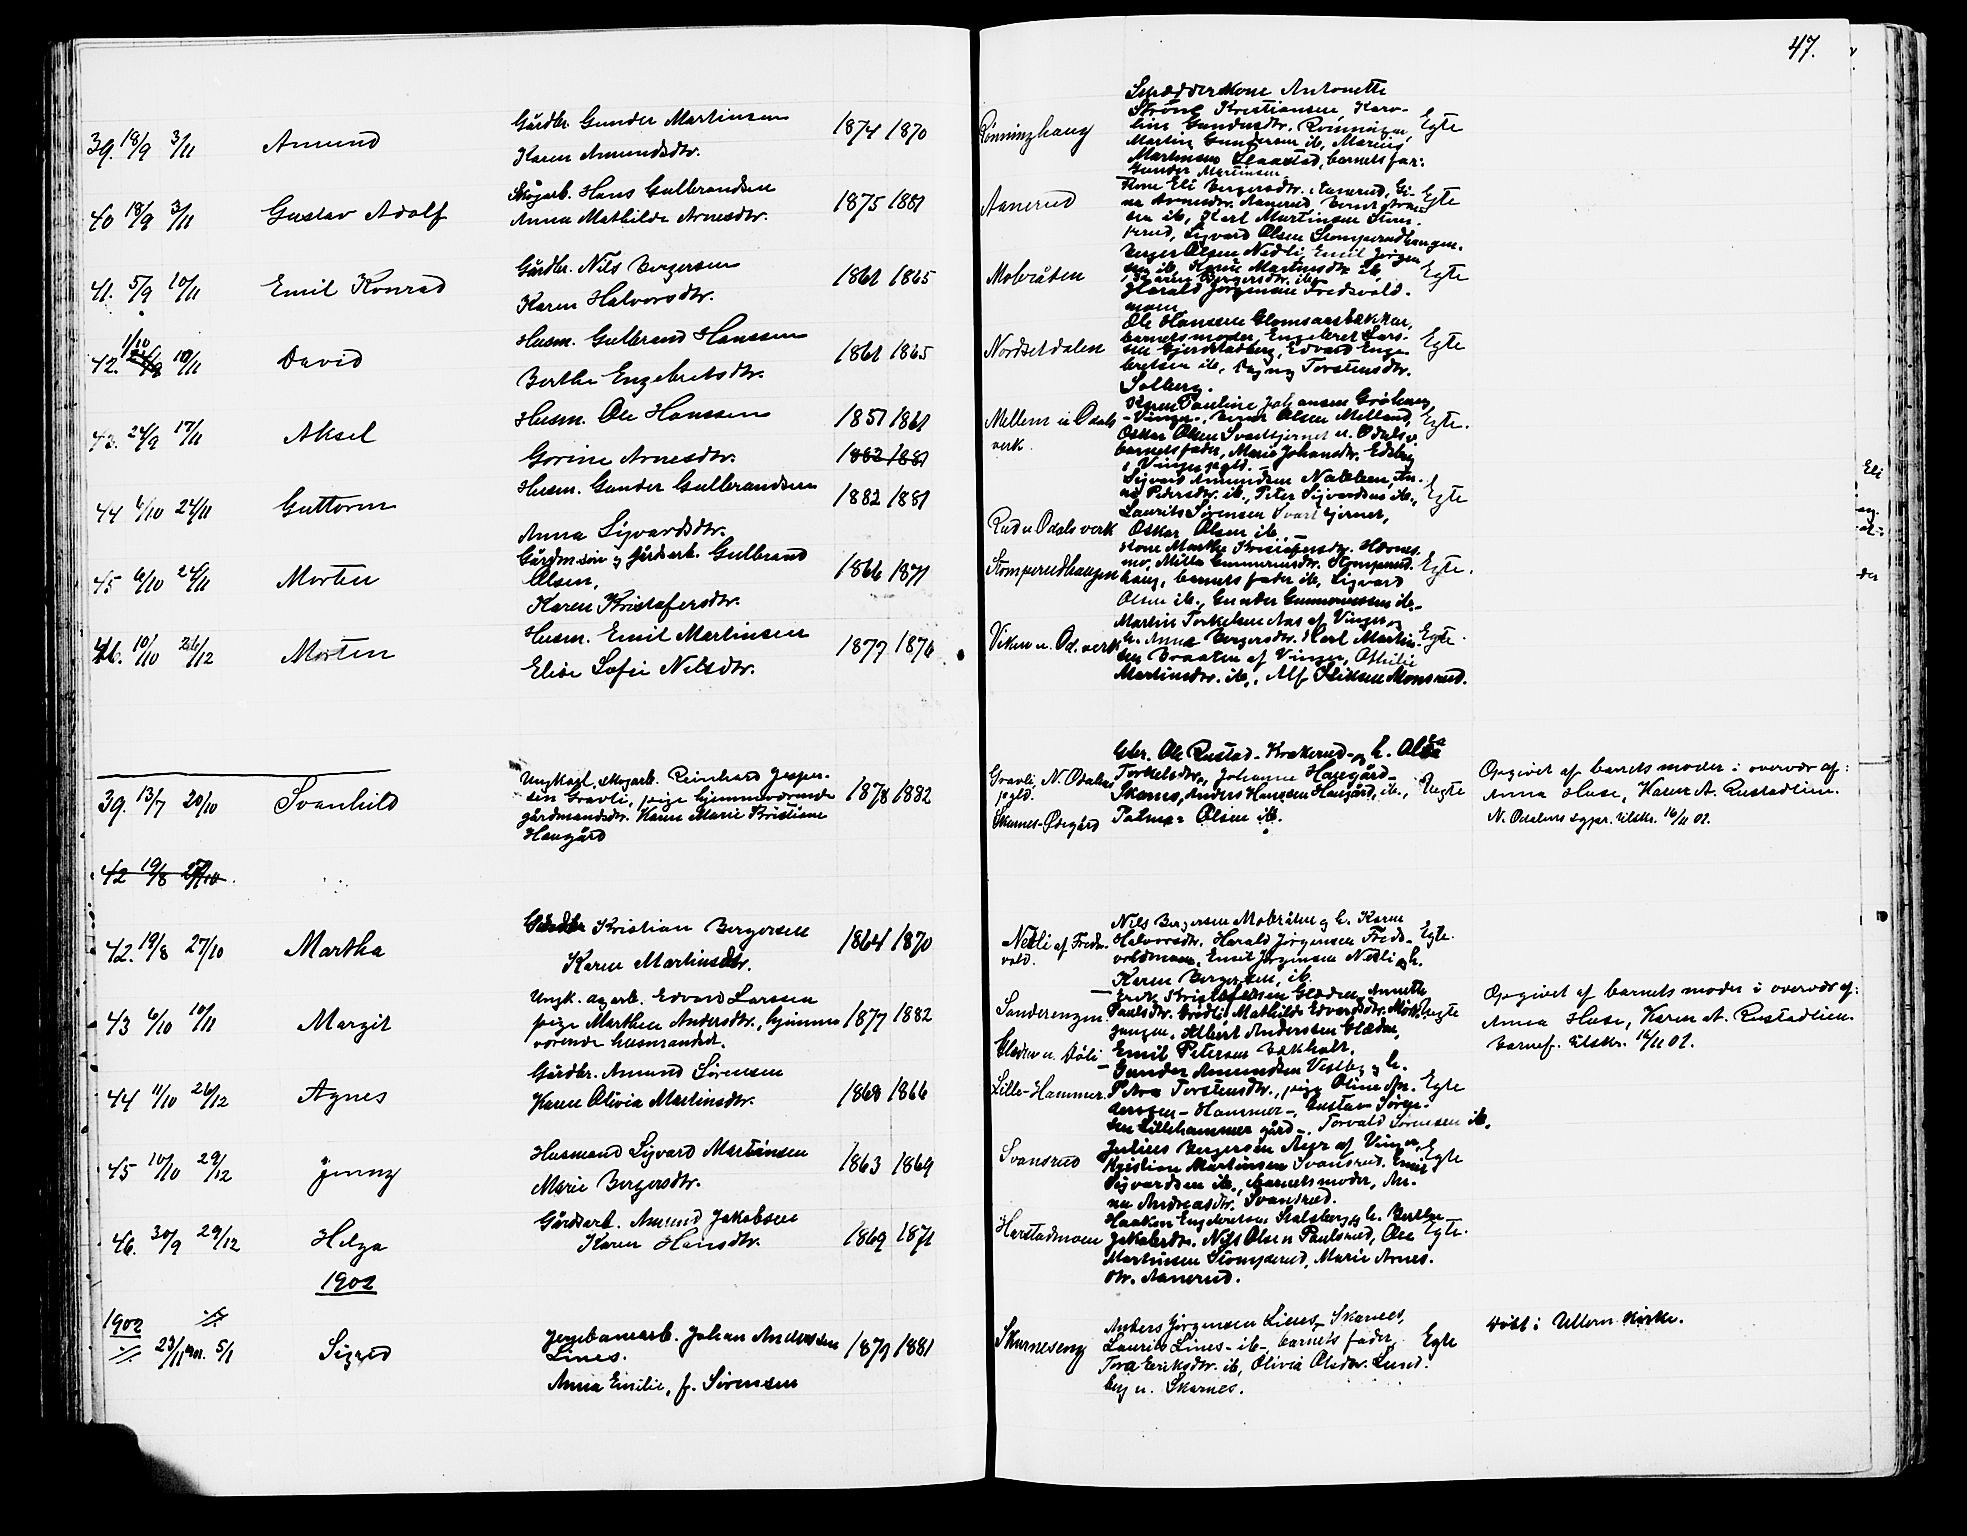 47.
39. 18/9 3/11 Amund
Gårdbr. Gunder Martinsen
Karen Amundsdtr.
1874 1870
Rønninghaug
Smeddekone Antonette
Strøm Kristiansen, Karo-
line Gundersdtr. Rønningen,
Martin Gundersen ib, Marius
Martinsen Slaastad, barnets far:
Gunder Martinsen
Egte
40 18/9 3/11 Gustav Adolf
Skogarb. Hans Gulbrandsen
Anna Mathilde Arnesdtr.
1875 1881
Aanerud
Kone Eli Bergersdtr. Aanerud, Gi-
na Arnesdtr. Aanerud, Bernt Arne
sen ib, Karl Martinsen
Sigvard Olsen Stomperudhaugen.
Egte
41. 5/9 10/11 Emil Konrad
Gårdbr. Nils Bergersen
Karen Halvorsdtr.
1861 1865
Mobråten
Berger Olsen Nedli, Emil Jørgen
sen ib, Karen Martinsdtr ib,
Karen Bergersdtr. ib,
Harald Jørgensen Fredsvold-
moen
Egte
42. 1/10 10/11 David
Husm. Gulbrand Hanssen
Berthe Engebretsdtr.
1861 1865
Nordsetdalen
Ole Hanssen Glomsaasbakken,
barnets moder, Engebret Lars-
sen Gjerdstadberg, Edvard Enge-
bretsen ib, Torstensdtr.
Solberg.
Egte
43. 24/9 17/11 Aksel
Husm. Ole Hanssen
Gorine Arnesdtr.
1857 1861
1882 1881
Mellem u Odals
verk.
Karen Pauline Johansen
- Vinger, Bernt Olsen Mellem,
Oskar Olsen Svartjernet u. Odals v.
barnets fader, Marie Johansdtr.
i Vinger pgld. -
Egte.
44 6/10 24/11 Guttorm
Husm. Gunder Gulbrandsen
Anna Sigvardsdtr.
1882 1881
Rud u Odals verk
Sigvard Amundsen Nabben, An-
na Pedersdtr. ib, Peter Sigvardsen ib,
Laurits Sørensen Svartjernet,
Oskar Olsen ib. -
Egte
45 6/10 24/11 Morten
Gårdmsøn og gårdsarb. Gulbrand
Olsen,
Karen Kristofersdtr.
1866 1871
Stomperudhaugen
Kone Marthe Kristofersdtr. Hernes-
mo, Milla Gunneriusdtr. Stomperud-
haug, barnets fader ib, Sigvard
Olsen ib., Gunder Gunneriussen ib.
Egte.
46. 10/10 26/12 Morten
Husm. Emil Martinsen
Elise Sofie Nilsdtr.
1877 1876
Viken u. Od. verk
Martin Torkelsen Aas af Vinger og
h. Anne Bergersdtr. Karl Martin-
sen Braaten af Vinger, Othilie
Martinsdtr. ib, Alf Monsrud.
Egte.
39. 13/7 20/10 Svanhild
Ungkarl, skogarb. Reinhard Jesper-
sen Gravli, pige hjemmeværende
gårdmandsdtr. Karen Marie Kristiane
Haugård
1878 1882
Gravli, N. Odalen
pgld.
Skarnes-Ødegård
Gbr. Ole Rustad-Krokerud og h. Olea
Torkelsdtr., Johanne Haugård-
Skarnes, Anders Hanssen Haugård, ib.,
Palmer Olsen ib.
Uegte
Opgivet af barnets moder i overvær af:
Anna Huse, Karen A. Rustadlien.
N. Odalens sgpr. tilskr. 16/11 01.
42 19/8 27/10
42. 19/8 27/10 Martha
Gårdbr Kristian Bergersen
Karen Martinsdtr.
1864 1870
Nedli af Freds-
vold.
Nils Bergersen Mobråten og h. Karen
Halvorsdtr. Harald Jørgensen Freds-
voldmoen, Emil Jørgensen Nedli og h.
Karen Bergersen, ib.
Egte.
43 6/10 10/11 Margit
Ungk. agerb. Edvard Larssen
pige Marthea Andersdtr., hjemme
værende husmandsdt.
1877 1882
Sanderengen
Glæden u. Døli
Erik Kristofersen Glæden, Annette
Paulsdtr. Brødli, Mathilde Edvardsdtr.
Albert Anderssen Glæden,
Emil Petersen Bækholt.
Uegte
Opgivet af barnets moder i overvær af:
Anna Huse, Karen A. Rustadlien.
Barnef. tilskr. 16/11 01.
44 11/10 26/12 Agnes
Gårdbr. Amund Sørensen
Karen Olivia Martinsdtr.
1868 1866
Lille-Hammer.
Gunder Amundsen Vestby og h.
Petra Torstensdtr., pige Oline An-
dersen - Hammer -, Gustav Søren-
sen Lillehammer gård -, Torvald Sørensen ib.
Egte
45 10/10 29/12 Jenny
Husmand Sigvard Martinsen
Marie Bergersdtr.
1863 1869
Svansrud
Julius Bergersen af Vinger,
Kristian Martinsen Svansrud, Emil
Sigvardsen ib., barnets moder, An-
na Andreasdtr. Svansrud.
Egte
46. 30/9 29/12 Helga
Gårdsarb. Amund Jakobsen
Karen Hansdtr.
1869 1871
Harstadmoen
Haaken Engebretsen Stalsberg og h. Berthe
Jakobsdtr. Nils Olsen Paulsrud, Ole
Martinsen Stomperud, Marie Arnes-
dtr. Aanerud.
Egte.
1902
1902
23/11 5/1 Sigrid
Jernbanearb. Johan Andersen
Lines.
Anna Emilie, f. Sørensen
1879 1881
Skarneseng
Anders Jørgensen Lines, Skarnes,
Laurits Lines - ib -, barnets fader,
Tora Eriksdtr. ib, Olivia Olsdtr. Lund-
berg u. Skarnes.
Egte
Døbt i Ullern kirke.